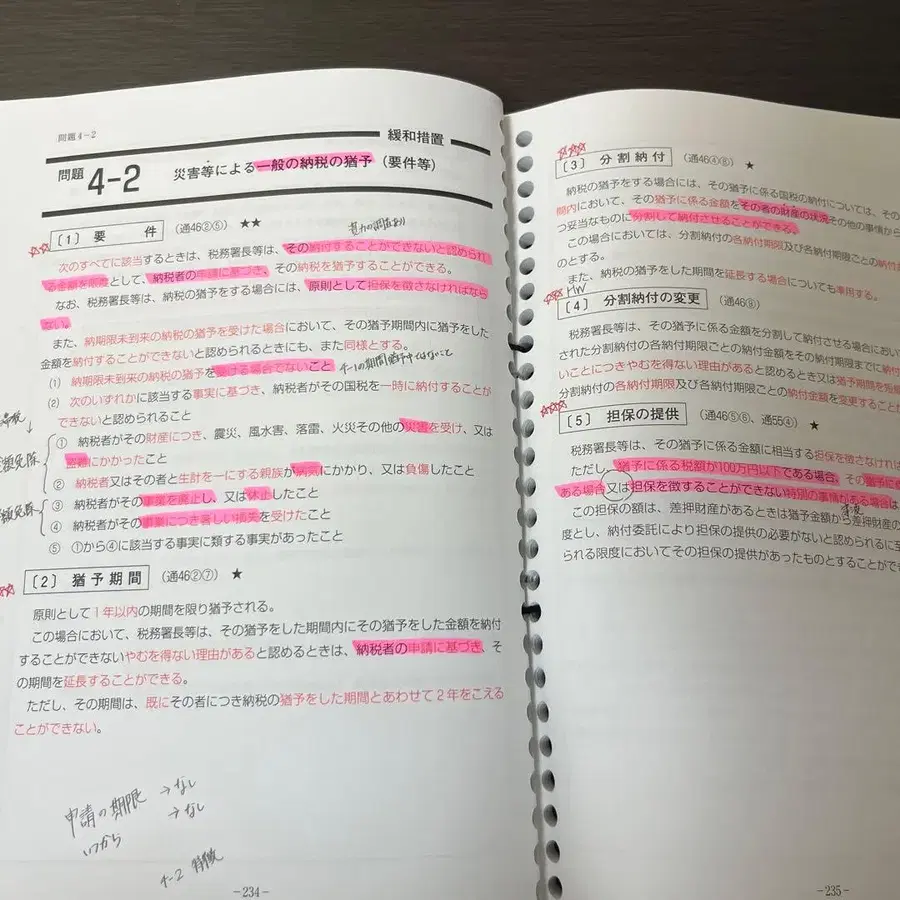 問題4-2
緩和措置
問題 4-2 災害等による一般の納税の猶予（要件等）
〔1〕要件 （通46②⑤） ★★
次のすべてに該当するときは、税務署長等は、その納付することができないと認められ
る金額を限度として、納税者の申請に基づき、その納税を猶予することができる。
なお、税務署長等は、納税の猶予をする場合には、原則として担保を徴さなければなら
ない。
また、納期限未到来の納税の猶予を受けた場合において、その猶予期間内に猶予をした
金額を納付することができないと認められるときにも、また同様とする。
(1) 納期限未到来の納税の猶予を受ける場合でないこと 4-1の期間猶予中ではないこと
(2) 次のいずれかに該当する事実に基づき、納税者がその国税を一時に納付することが
できないと認められること
① 納税者がその財産につき、震災、風水害、落雷、火災その他の災害を受け、又は
盗難にかかったこと
② 納税者又はその者と生計を一にする親族が病気にかかり、又は負傷したこと
③ 納税者がその事業を廃止し、又は休止したこと
④ 納税者がその事業につき著しい損失を受けたこと
⑤ ①から④に該当する事実に類する事実があったこと
〔2〕猶予期間 （通46②⑦） ★
原則として1年以内の期間を限り猶予される。
この場合において、税務署長等は、その猶予をした期間内にその猶予をした金額を納付
することができないやむを得ない理由があると認めるときは、納税者の申請に基づき、そ
の期間を延長することができる。
ただし、その期間は、既にその者につき納税の猶予をした期間とあわせて2年をこえる
ことができない。
申請の期限 →なし
いつから →なし
4-2 特徴
－234－
〔3〕分割納付 （通46④⑧） ★
納税の猶予をする場合には、その猶予に係る国税の納付については、その
間内において、その猶予に係る金額をその者の財産の状況その他の事情から
つ妥当なものに分割して納付させることができる。
この場合においては、分割納付の各納付期限及び各納付期限ごとの納付金
のとする。
また、納税の猶予をした期間を延長する場合についても準用する。
HW
〔4〕分割納付の変更 （通46⑨）
税務署長等は、その猶予に係る金額を分割して納付させる場合におい
された分割納付の各納付期限ごとの納付金額をその納付期限までに納付
いことにつきやむを得ない理由があると認めるとき又は猶予期間を短
分割納付の各納付期限及び各納付期限ごとの納付金額を変更することが
〔5〕担保の提供 （通46⑤⑥、通55④） ★
税務署長等は、その猶予に係る金額に相当する担保を徴さなければ
ただし、猶予に係る税額が100万円以下である場合、その猶予に
ある場合又は担保を徴することができない特別の事情がある場合は
この担保の額は、差押財産があるときは猶予金額から差押財産の
度とし、納付委託により担保の提供の必要がないと認められるに至
られる限度においてその担保の提供があったものとすることができ
－235－